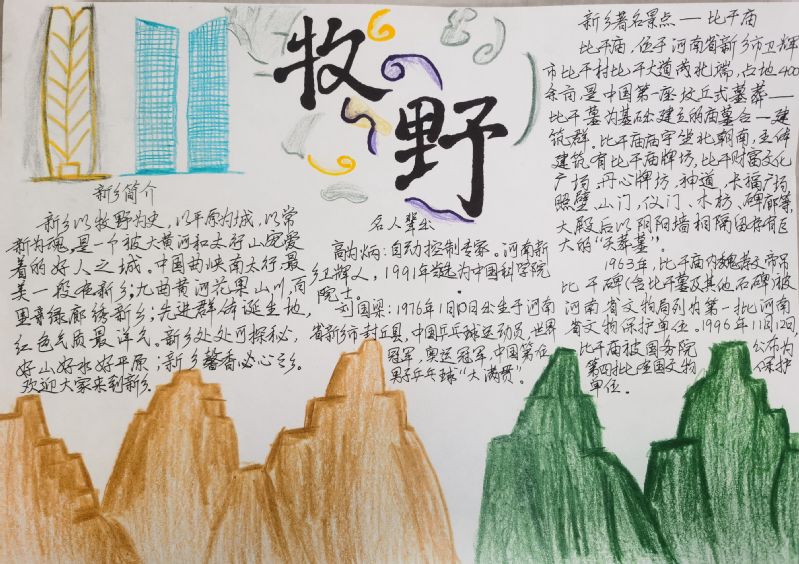 牧野
新乡简介
新乡以牧野为史，以平原为城，以常
新为魂，是一个被大黄河和太行山宠爱
着的好人之城。中国曲峡南太行，最
美一段在新乡；九曲黄河花果山川，百
里青绿廊绣新乡；先进群体诞生地，
红色气质最洋气。新乡处处可探秘，
好山好水好平原；新乡馨香必心之乡。
欢迎大家来到新乡
名人辈出
高为炳：自动控制专家。河南新
乡卫辉人，1991年当选为中国科学院
院士。
刘国梁：1976年1月10日出生于河南
省新乡市封丘县，中国乒乓球运动员，世界
冠军，奥运冠军，中国第一位
男子乒乓球“大满贯”。
新乡著名景点——比干庙
比干庙，位于河南省新乡市卫辉
市比干村比干大道茂北端，占地400
余亩，是中国第一座坟丘式墓葬——
比干墓为基础建立的庙墓合一建
筑群。比干庙庙宇坐北朝南，主体
建筑有比干庙牌坊，比干财富文化
广场，丹心牌坊，神道，卡福广场，
照壁，山门，仪门，木坊，碑廊等，
大殿后以阴阳墙相隔留存有巨
大的“天葬墓”。
1963年，比干庙内魏孝文帝吊
比干碑（含比干墓及其他石碑）被
河南省文物局列为第一批河南
省文物保护单位。1996年11月12日，
比干庙被国务院公布为
第四批全国文物保护
单位。